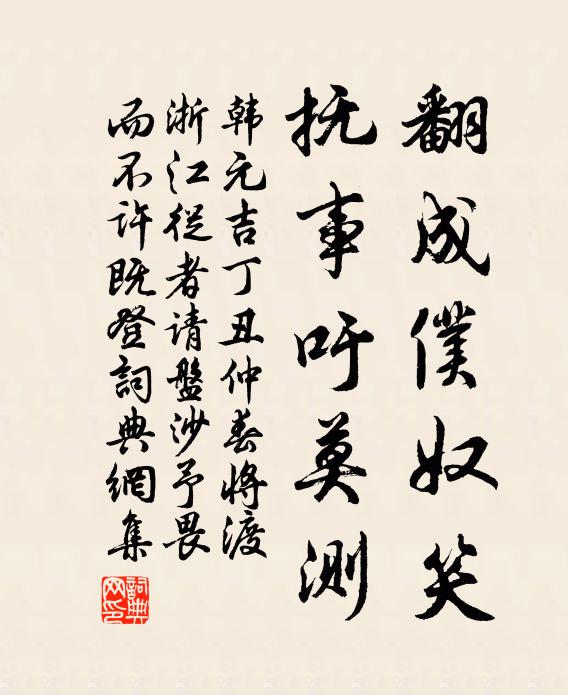 翻成僕奴笑
抚事吁莫测
韩元吉丁丑仲春将渡
浙江從者请盤沙予畏
而不许既登詞典網集